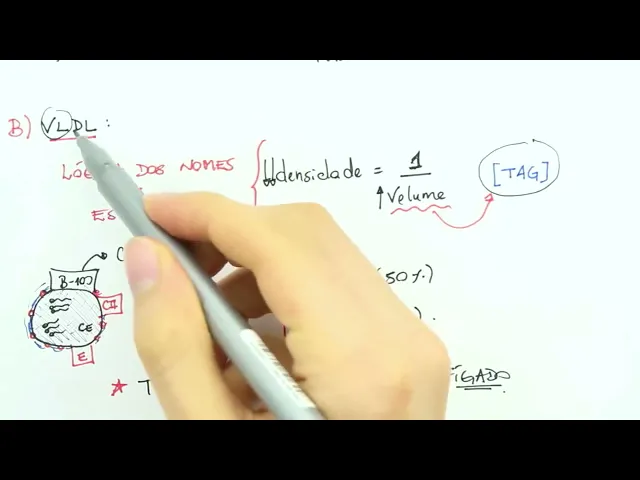 B) VLDL:
DOS NOMES
↓↓densidade = 1
↑Volume
[TAG]
ES
B-100
CII
CE
E
(50%)
T
FÍGADO